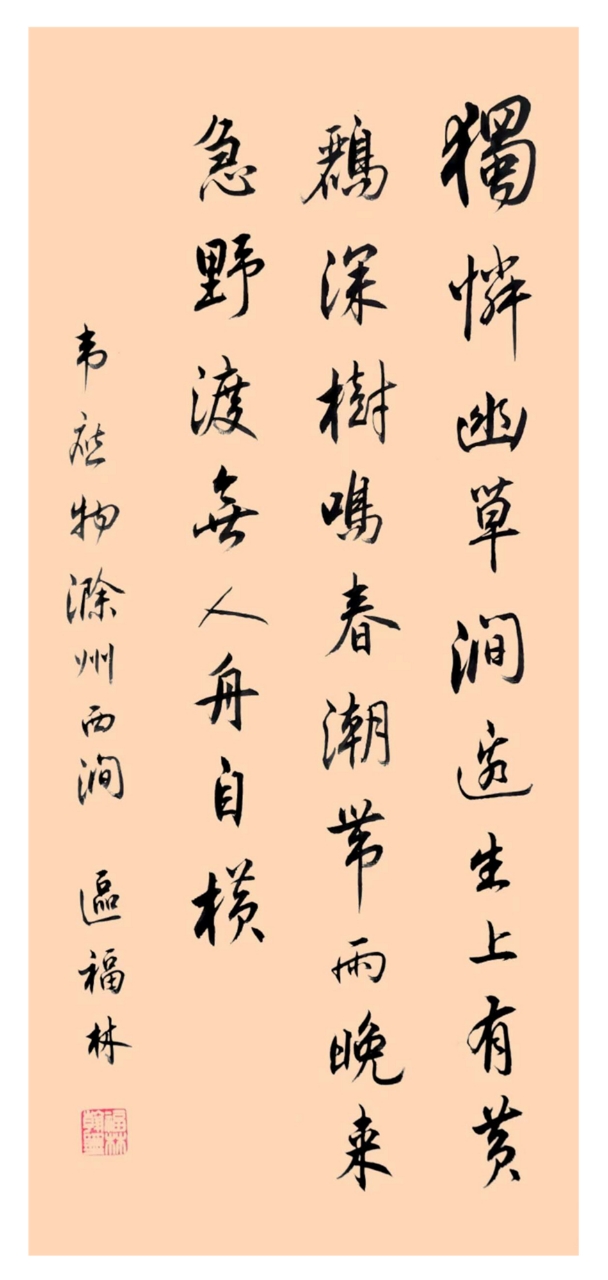 獨憐幽草澗邊生上有黃
鸝深樹鳴春潮帶雨晚來
急野渡無人舟自橫
韦應物滁州西澗 區福林
福林翰墨